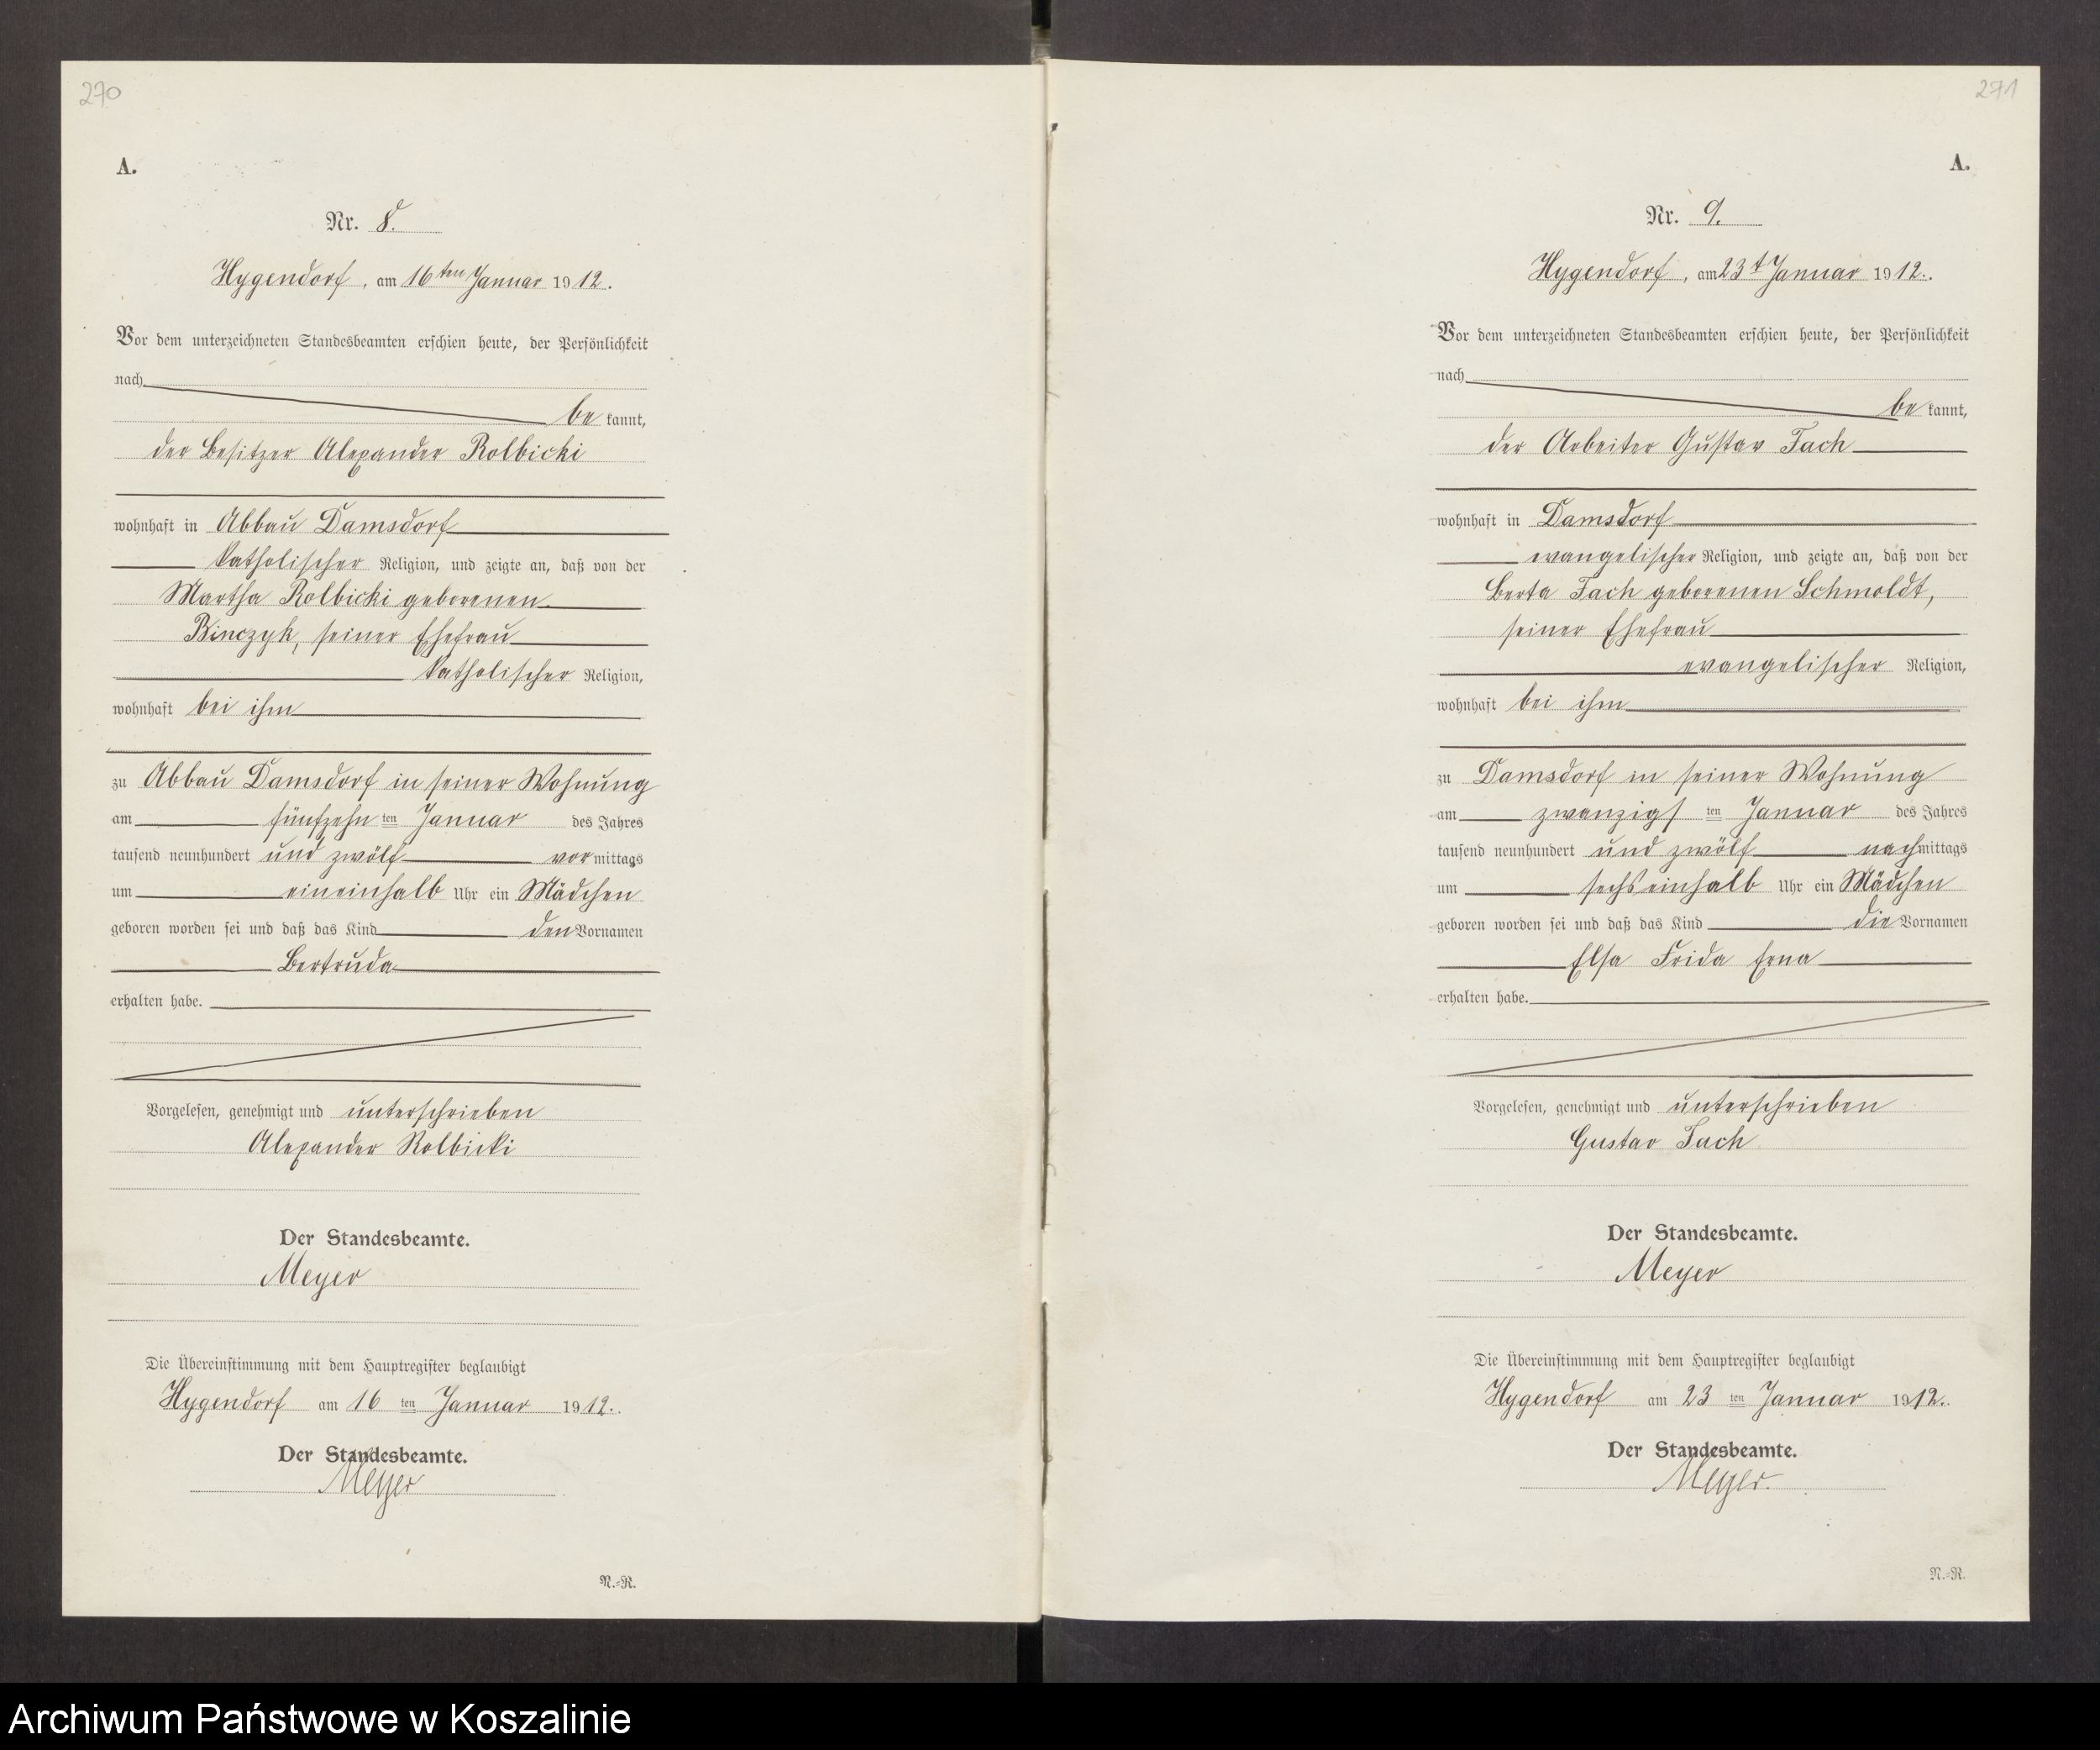 270
A.
Nr. 8.
Hygendorf, am 16ten Januar 1912.
Vor dem unterzeichneten Standesbeamten erschien heute, der Persönlichkeit
nach
be kannt,
der Besitzer Alexander Rolbicki
wohnhaft in Abbau Damsdorf
katholischer Religion, und zeigte an, daß von der
Martha Rolbicki geborenen
Binczyk, seiner Ehefrau
katholischer Religion,
wohnhaft bei ihm
zu Abbau Damsdorf in seiner Wohnung
am fünfzehn ten Januar des Jahres
tausend neunhundert und zwölf vor mittags
um eineinhalb Uhr ein Mädchen
geboren worden sei und daß das Kind den Vornamen
Bertruda
erhalten habe.
Vorgelesen, genehmigt und unterschrieben
Alexander Rolbicki
Der Standesbeamte.
Meyer
Die Übereinstimmung mit dem Hauptregister beglaubigt
Hygendorf am 16 ten Januar 1912.
Der Standesbeamte.
Meyer
N.=R.
271
A.
Nr. 9.
Hygendorf, am 23t Januar 1912.
Vor dem unterzeichneten Standesbeamten erschien heute, der Persönlichkeit
nach
be kannt,
der Arbeiter Gustav Fach
wohnhaft in Damsdorf
evangelischer Religion, und zeigte an, daß von der
Berta Fach geborenen Schmoldt,
seiner Ehefrau
evangelischer Religion,
wohnhaft bei ihm
zu Damsdorf in seiner Wohnung
am zwanzigs ten Januar des Jahres
tausend neunhundert und zwölf nach mittags
um sechseinhalb Uhr ein Mädchen
geboren worden sei und daß das Kind die Vornamen
Elsa Frida Erna
erhalten habe.
Vorgelesen, genehmigt und unterschrieben
Gustav Fach
Der Standesbeamte.
Meyer
Die Übereinstimmung mit dem Hauptregister beglaubigt
Hygendorf am 23 ten Januar 1912.
Der Standesbeamte.
Meyer.
N.=R.
Archiwum Państwowe w Koszalinie